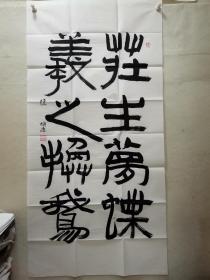 莊生夢蝶
羲之換鵝